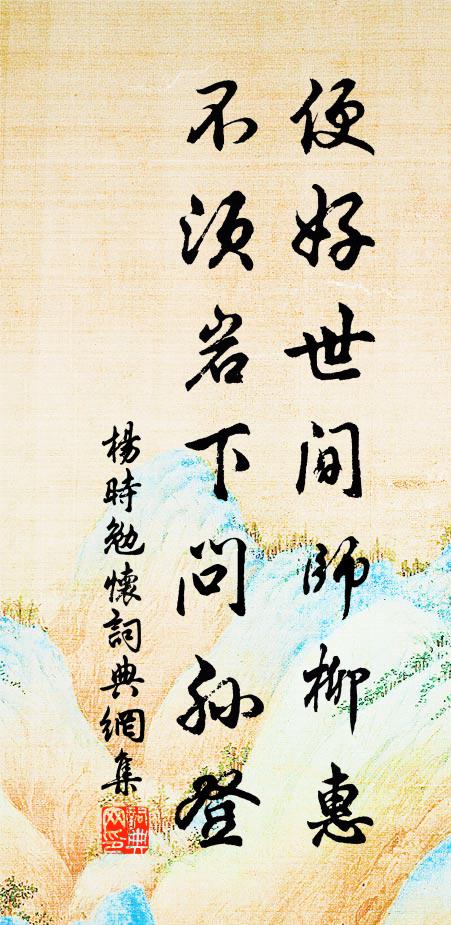 便好世间師柳惠
不须岩下问孙登
楊時勉懷詞典網集
詞典
网印